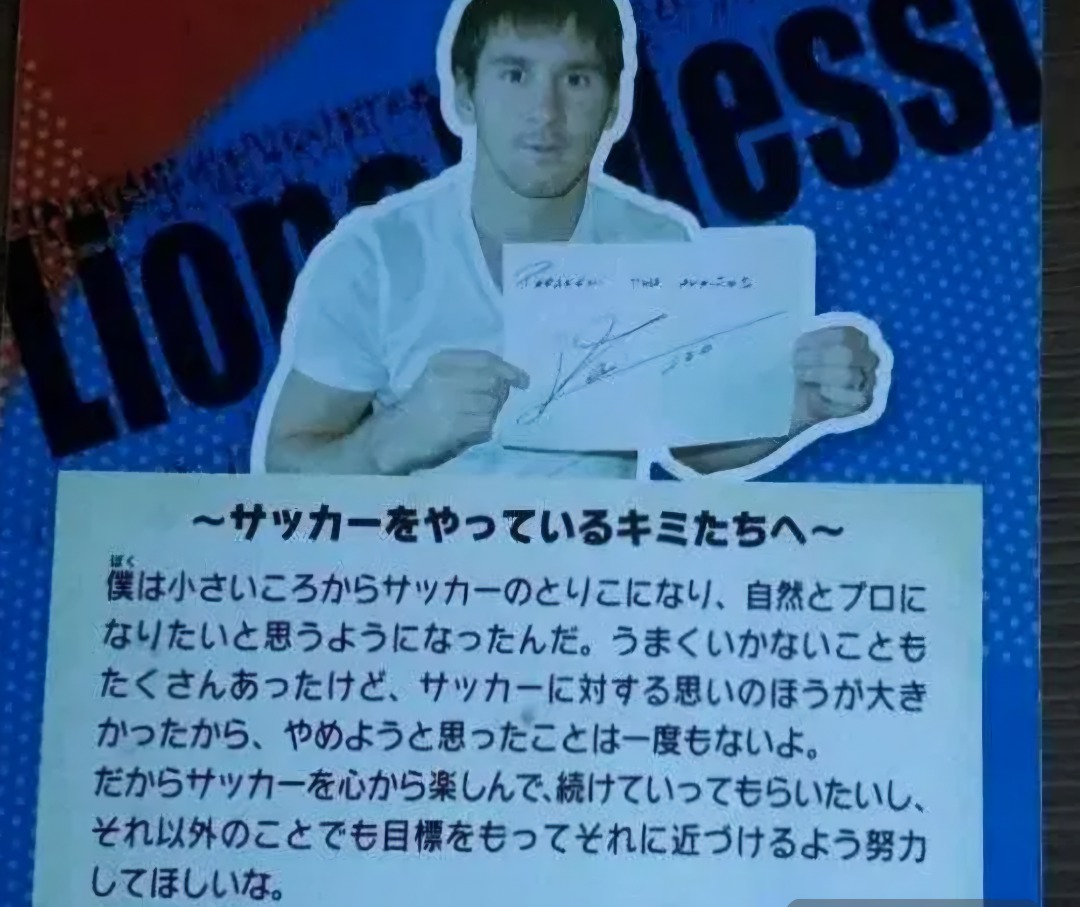 Lionel Messi
～サッカーをやっているキミたちへ～
ぼく
僕は小さいころからサッカーのとりこになり、自然とプロに
なりたいと思うようになったんだ。うまくいかないことも
たくさんあったけど、サッカーに対する思いのほうが大き
かったから、やめようと思ったことは一度もないよ。
だからサッカーを心から楽しんで、続けていってもらいたいし、
それ以外のことでも目標をもってそれに近づけるよう努力
してほしいな。